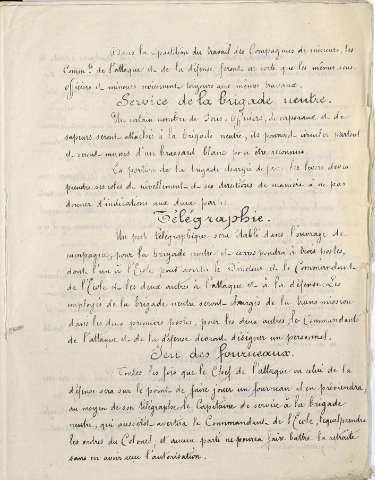 Dans la répartition du travail des Compagnies de mineurs, les
Comm.ts de l'attaque et de la défense feront en sorte que les mêmes sous
officiers et mineurs reviennent toujours aux mêmes travaux.
Service de la brigade neutre.
Un certain nombre de Sous-officiers, de caporaux et de
sapeurs seront attachés à la brigade neutre, ils pourront circuler partout
et seront munis d'un brassard blanc pour être reconnus.
La portion de la brigade chargée de les levers devra
prendre ses cotes de nivellement et ses directions de manière à ne pas
donner d'indications aux deux partis.
Télégraphie.
Un poste télégraphique sera établi dans l'ouvrage de
campagne, pour la brigade neutre et correspondra à trois postes,
dont l'un à l'Ecole pour avertir le Directeur et le Commandant
de l'Ecole et les deux autres à l'attaque et à la défense. Les
employés de la brigade neutre seront chargés de la transmission
dans les deux premiers postes; pour les deux autres, les Commandants
de l'attaque et de la défense devront désigner un personnel.
Jeu des fourneaux.
Toutes les fois que le Chef de l'attaque ou celui de la
défense sera sur le point de faire jouer un fourneau il en préviendra,
au moyen de son télégraphe, le Capitaine de service à la brigade
neutre, qui aussitôt avertira le Commandant de l'Ecole, lequel prendra
les ordres du Colonel, et aucun parti ne pourra faire battre la retraite
sans en avoir reçu l'autorisation.